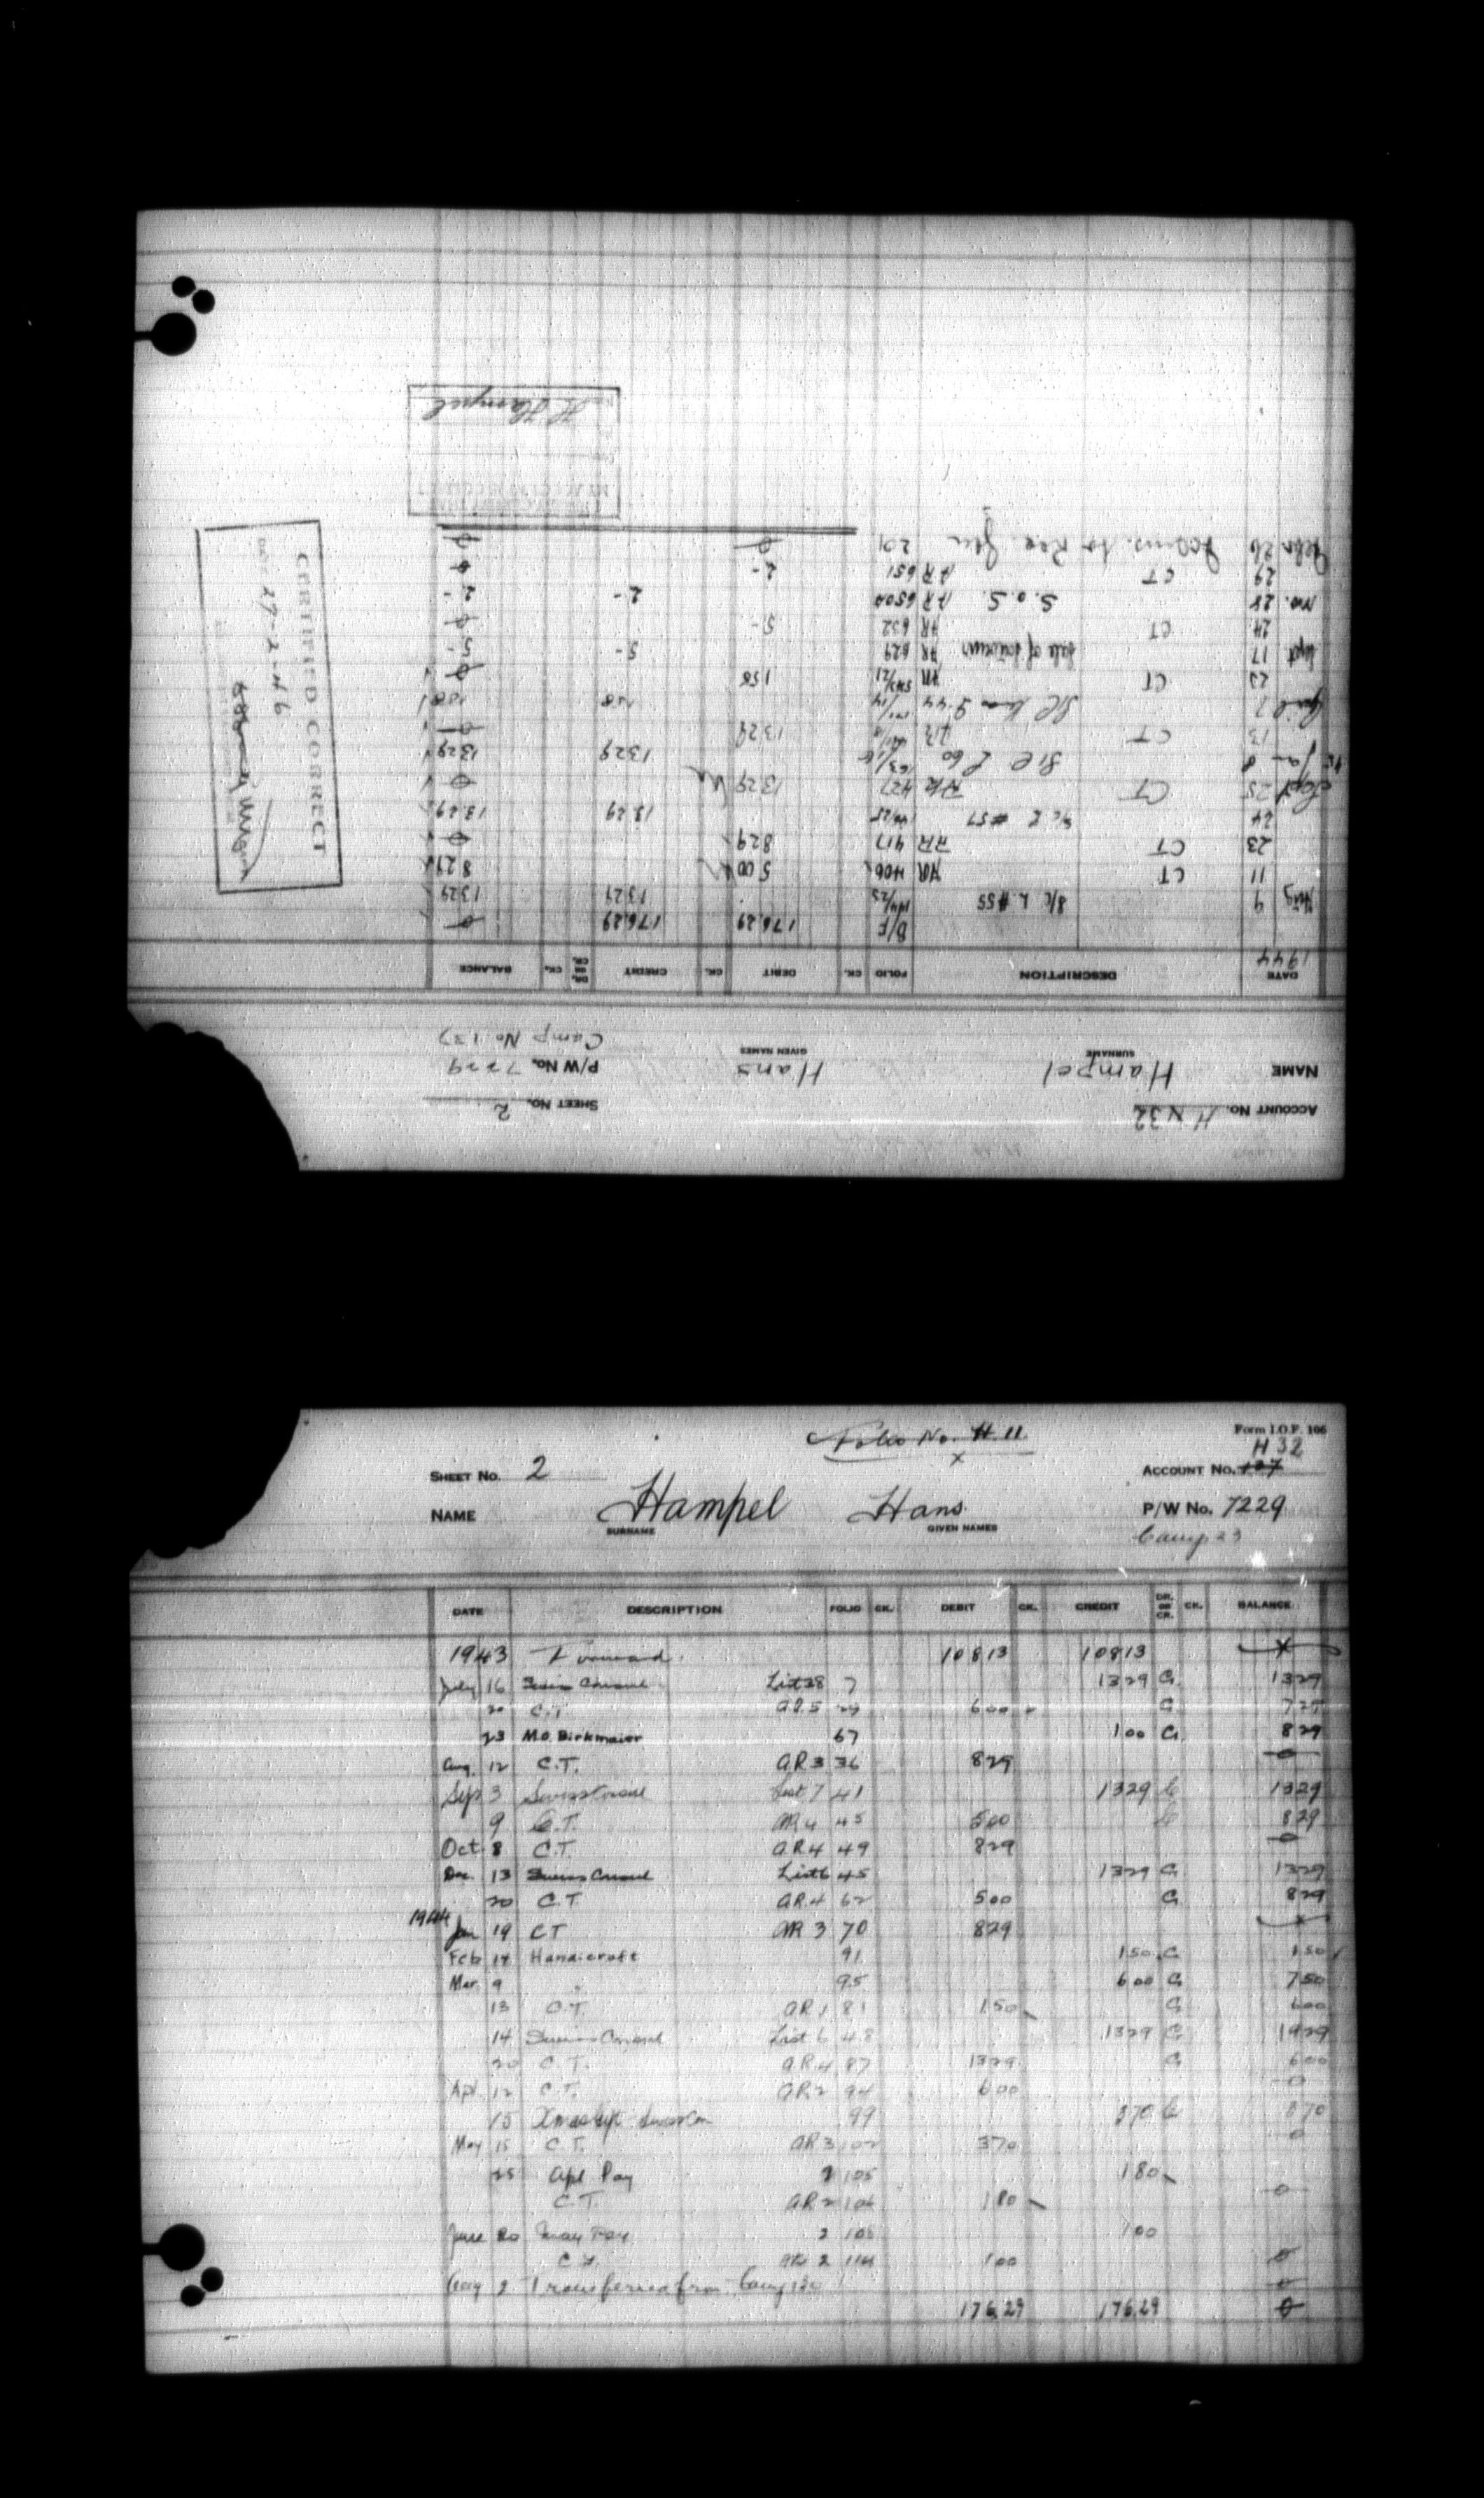 Form I.O.F. 106
Folio No. H 11
H 32
SHEET No. 2 ACCOUNT No. 107
NAME Hampel Hans P/W No. 7229
SURNAME GIVEN NAMES
Camp 23
DATE DESCRIPTION FOLIO CK. DEBIT CK. CREDIT DR. OR CR. CK. BALANCE
1943 Forward 108 13 108 13
July 16 Swiss Consul List 28 7 13 29 C. 13 29
20 C.T. A.R. 5 29 6 00 C. 7 29
23 M.O. Birkmaier 67 1 00 C. 8 29
Aug. 12 C.T. A.R 3 36 8 29 0
Sep 3 Swiss Consul List 7 41 13 29 C 13 29
9 C.T. AR 4 45 5 00 C 8 29
Oct 8 C.T. A.R 4 49 8 29 0
Dec. 13 Swiss Consul List 6 45 13 29 C. 13 29
20 C.T. A.R. 4 62 5 00 C. 8 29
1944
Jan 19 CT AR 3 70 8 29
Feb 14 Handicraft 91 1 50 C 1 50
Mar. 9 " 95 6 00 C 7 50
13 C.T. A.R 1 81 1 50 C 6 00
14 Swiss Consul List 6 48 13 29 C 19 29
20 C.T. A.R. 4 87 13 29 C 6 00
Apl. 12 C.T. A.R 2 94 6 00 0
15 Xmas Gift Swiss Con 99 3 70 C 3 70
May 15 C.T. A.R 3 102 3 70 0
25 Apl Pay 2 105 1 80
C.T. A.R 2 106 1 80 0
June 20 May Pay 2 108 1 00
C.T. AR 2 114 1 00 0
Aug 2 Transferred from Camp 130 0
176.29 176.29 0
ACCOUNT No. H 32 SHEET No. 2
NAME Hampel Hans P/W No. 7229
SURNAME GIVEN NAMES Camp No 137
DATE DESCRIPTION FOLIO CK. DEBIT CK. CREDIT DR. OR CR. CK. BALANCE
1944
B/F 176.29 176.29 0
Aug 9 S/C L #55 144/25 13 29 13 29
11 CT AR 406 5 00 8 29
23 CT AR 417 8 29 0
24 S/C L #57 13.29 13.29
Sept 25 CT AR 427 13 29 0
45 Jan 8 S/C L 60 63/ 13 29 13 29
13 CT AR 13 29 0
7 1 58 1 58
23 CT AR 1 58 0
Sept 17 Sale of AR 629 5- 5-
24 CT AR 632 5- 0
Nov. 28 S.O.S. AR 650A 2- 2-
29 CT AR 651 2- 0
Febr 26 to Rec. Gen 201 0 0
H Hampel
CERTIFIED CORRECT
DATE 27-2-46